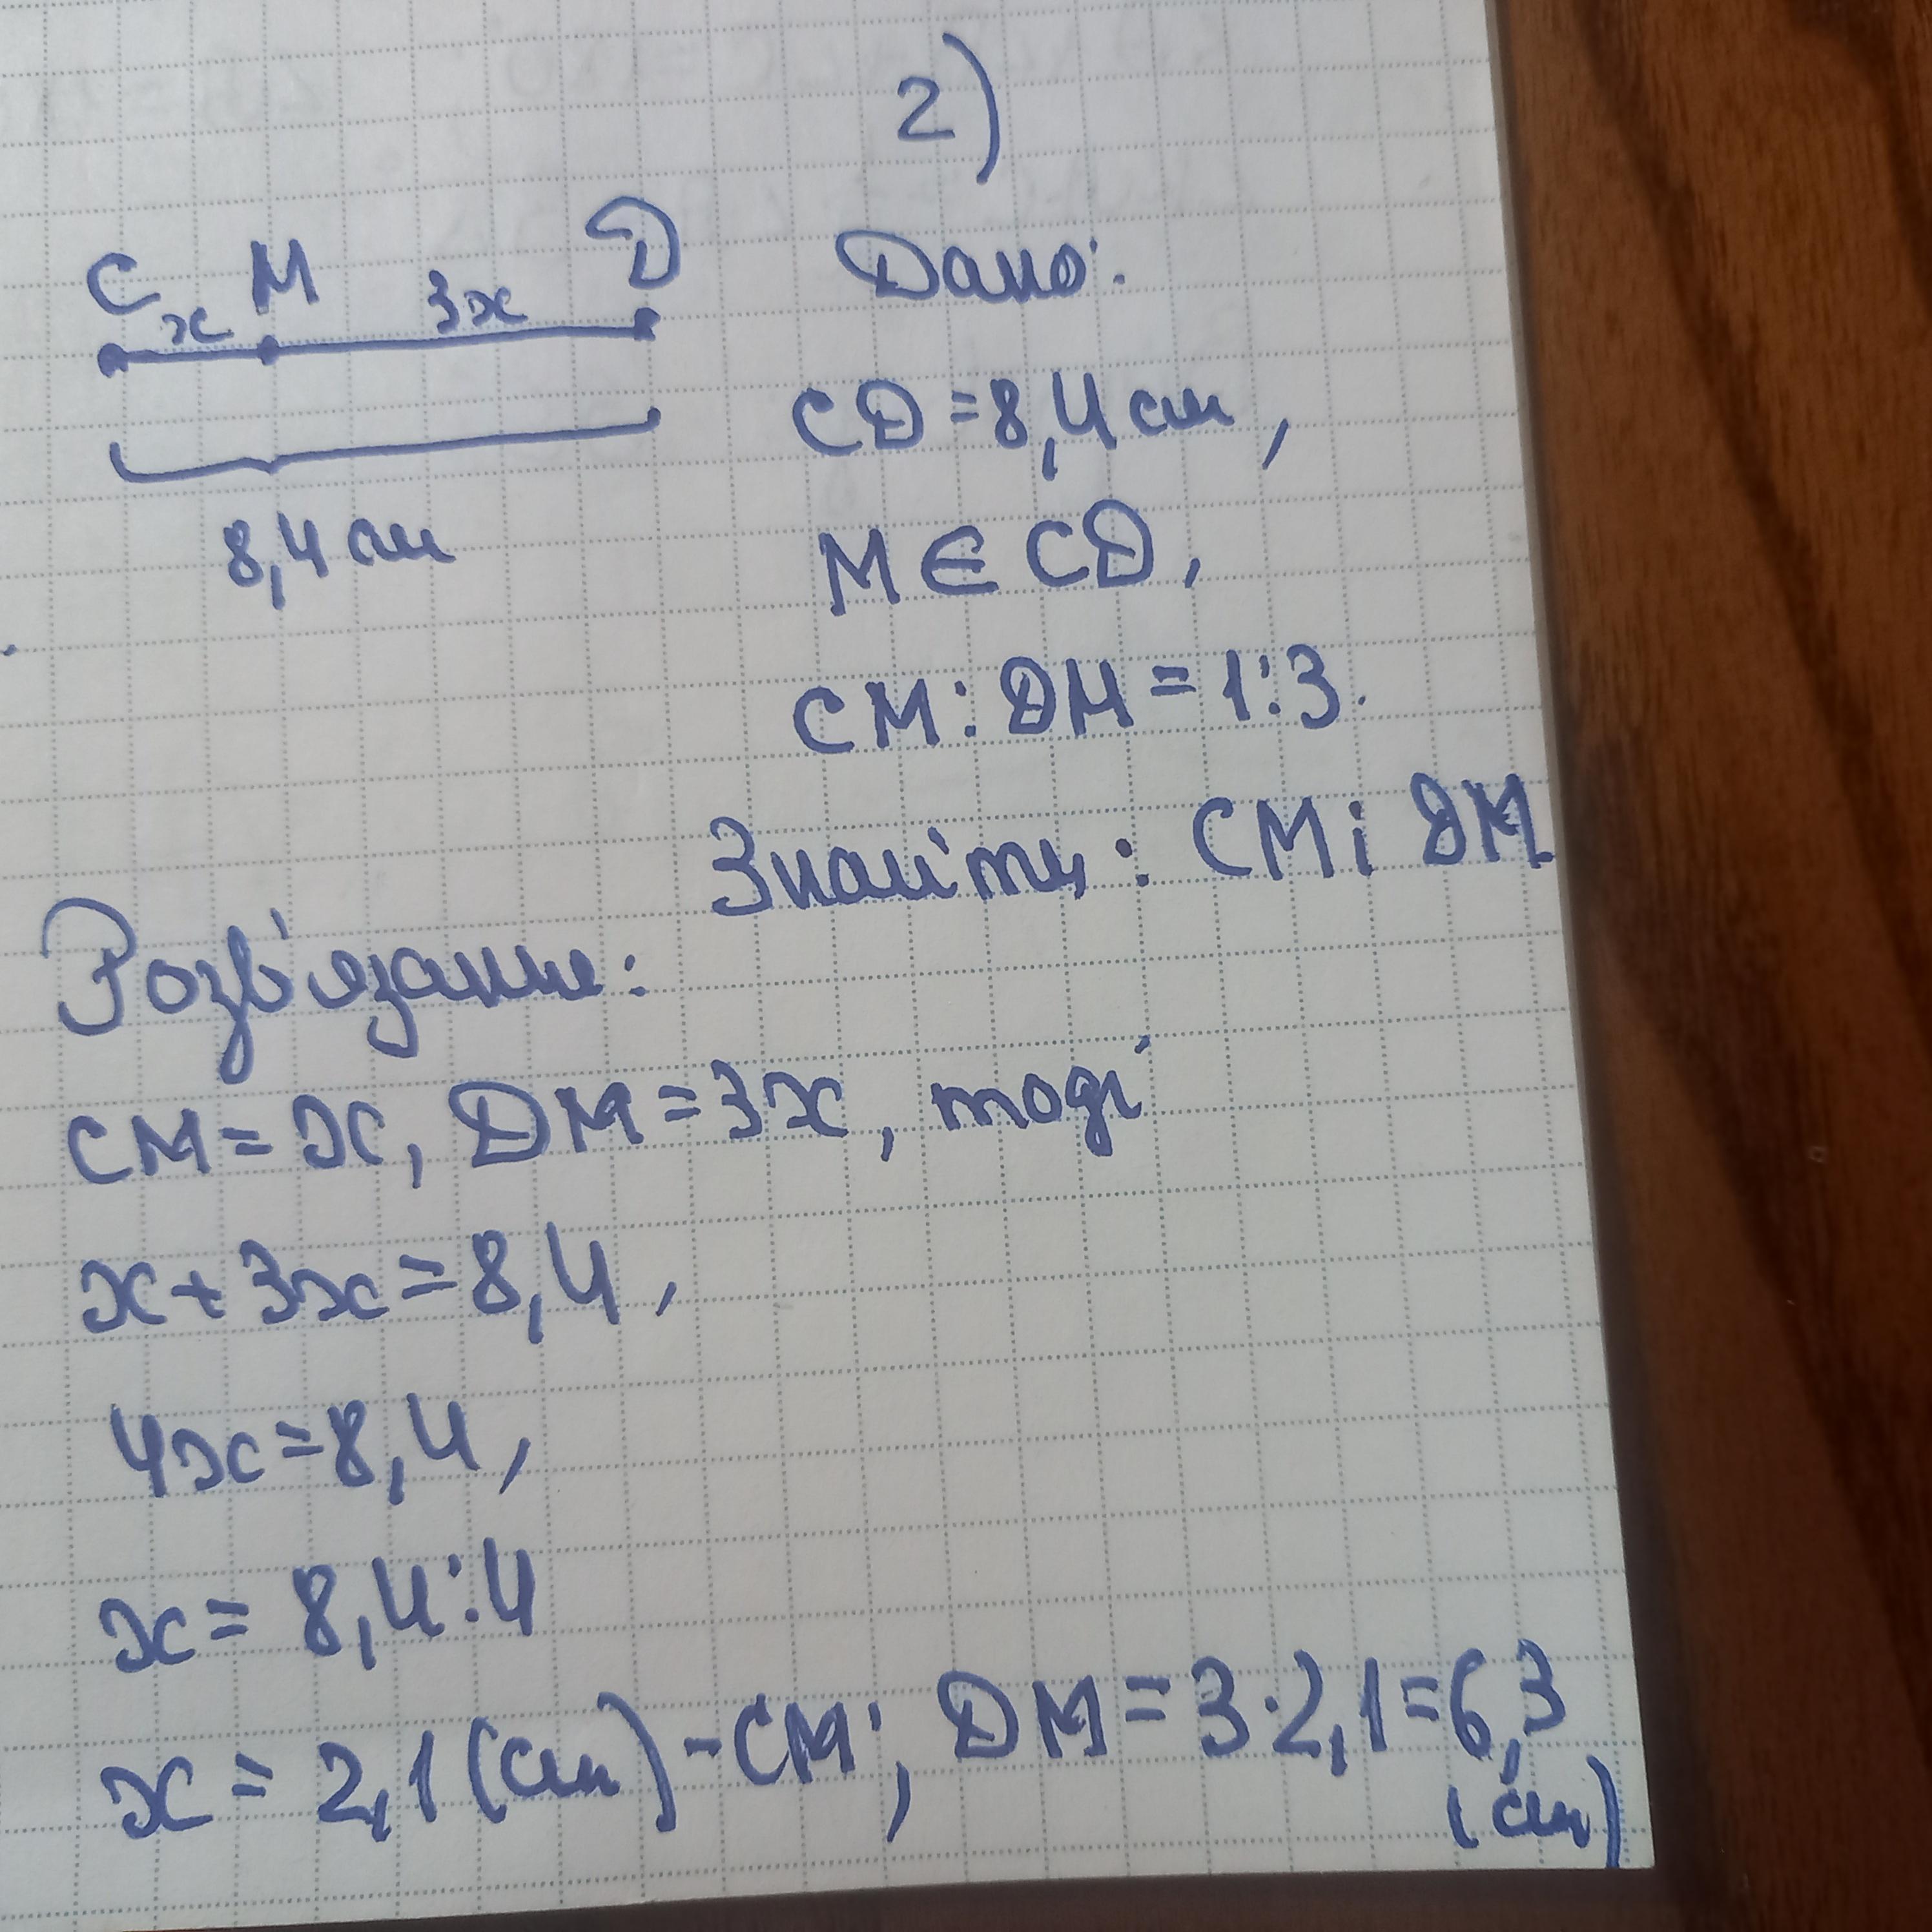 2)
C x M 3x D
8,4 см
Дано:
CD = 8,4 см,
M ∈ CD,
CM : DM = 1:3.
Знайти: CM і DM
Розв'язання:
CM = x, DM = 3x, тоді
x + 3x = 8,4,
4x = 8,4,
x = 8,4:4
x = 2,1 (см) - CM; DM = 3·2,1 = 6,3
(см)